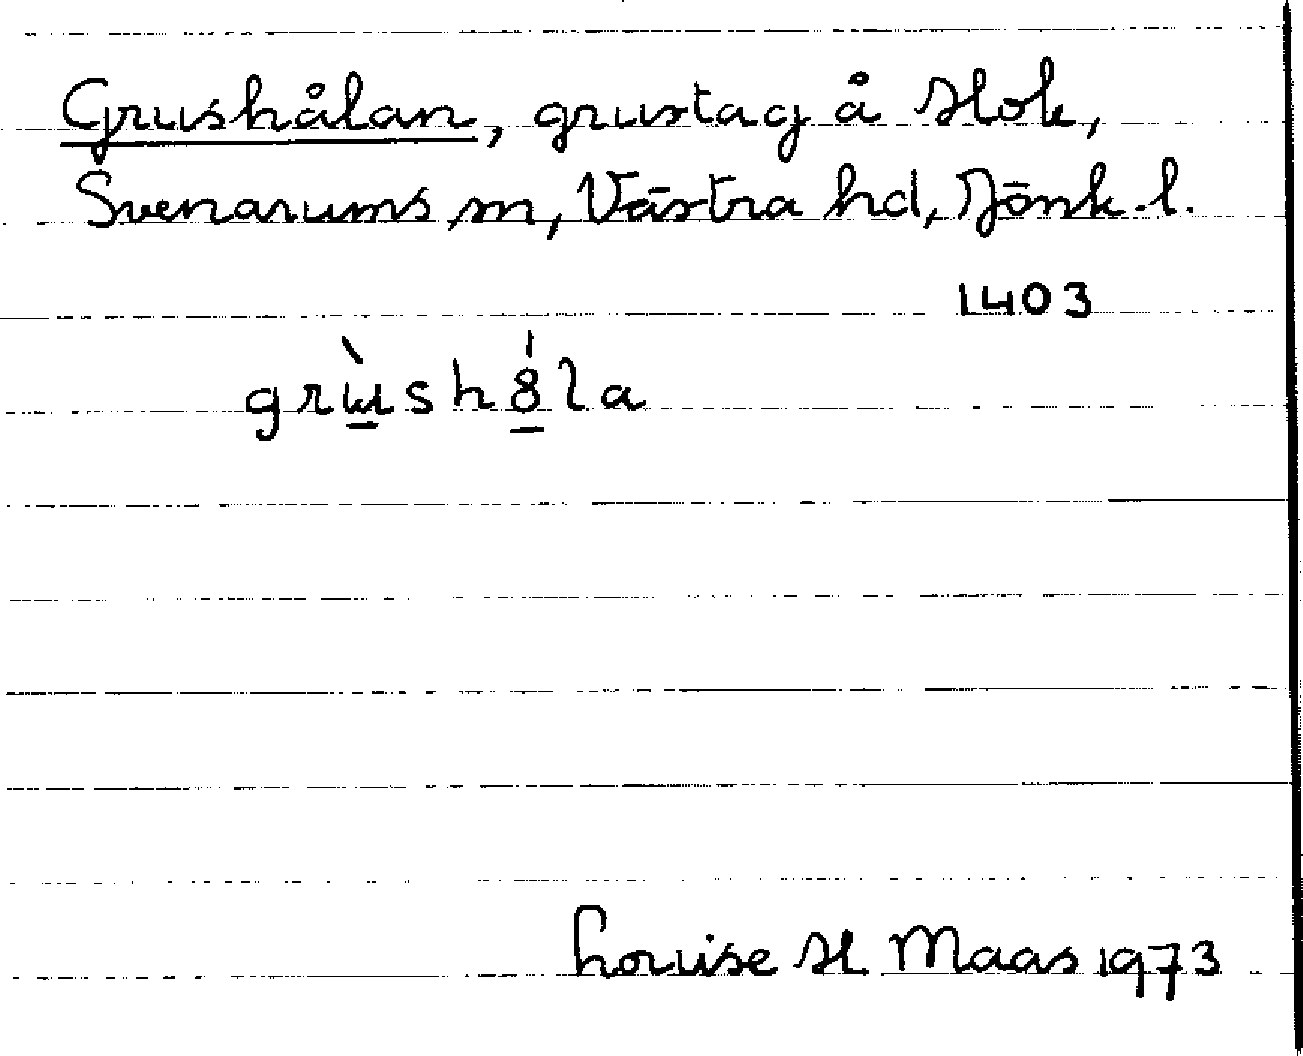 Grushålan, grustag å Hok,
Svenarums sn, Västra hd, Jönk. l.
1403
grɯ̀shə́la
Louise H Maas 1973